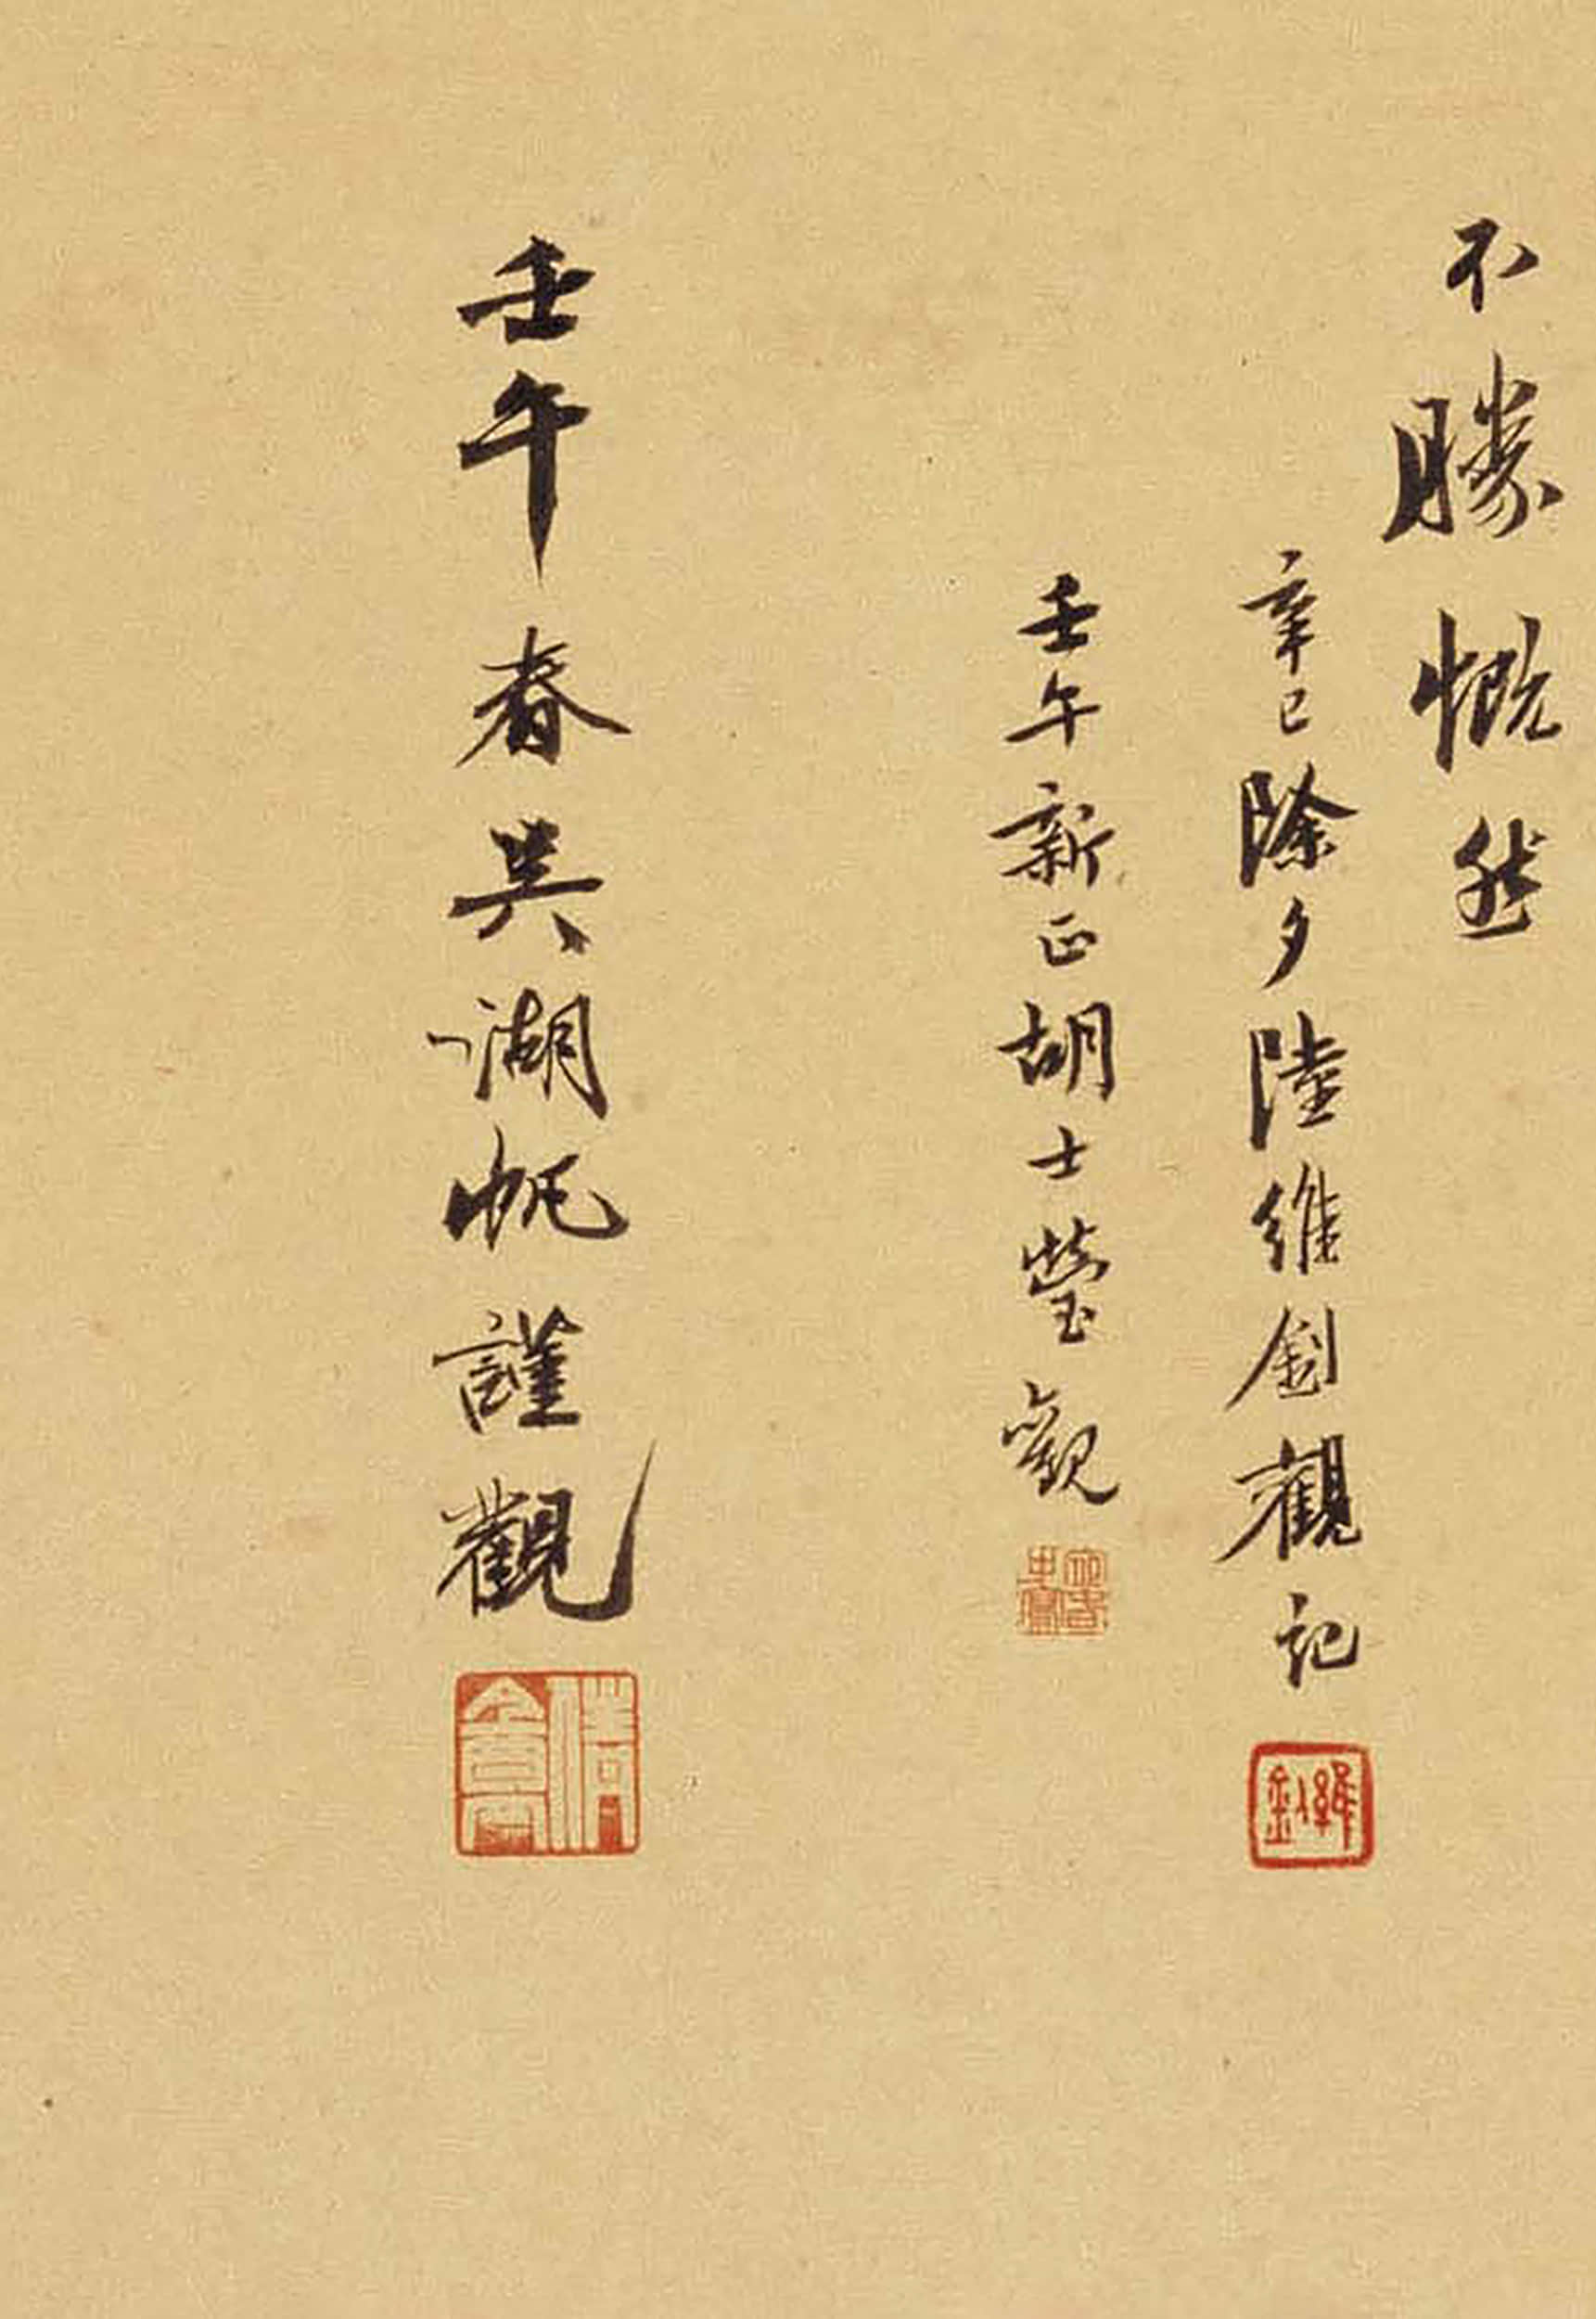 不勝慨然
辛巳除夕陸維釗觀記
壬午新正胡士瑩觀
壬午春吳湖帆謹觀
維釗